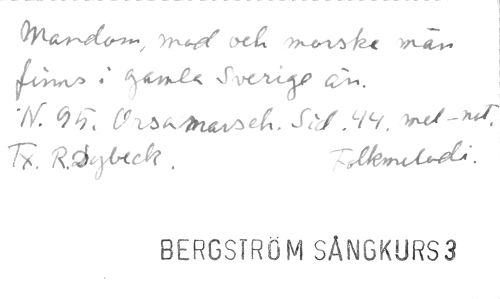 Mandom, mod och morske män
finns i gamla Sverige än.
N. 95. Orsamarsch. Sid. 44. mel-not.
Tx. R. Dybeck. Folkmelodi.
BERGSTRÖM SÅNGKURS 3